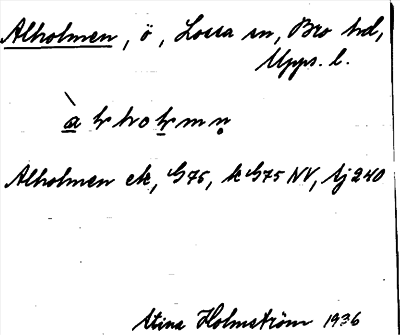 Alholmen, ö, Lossa sn, Bro hd,
Upps. l.
Alholmen ek, G75, k G75 NV, tj 240
Stina Holmström 1936